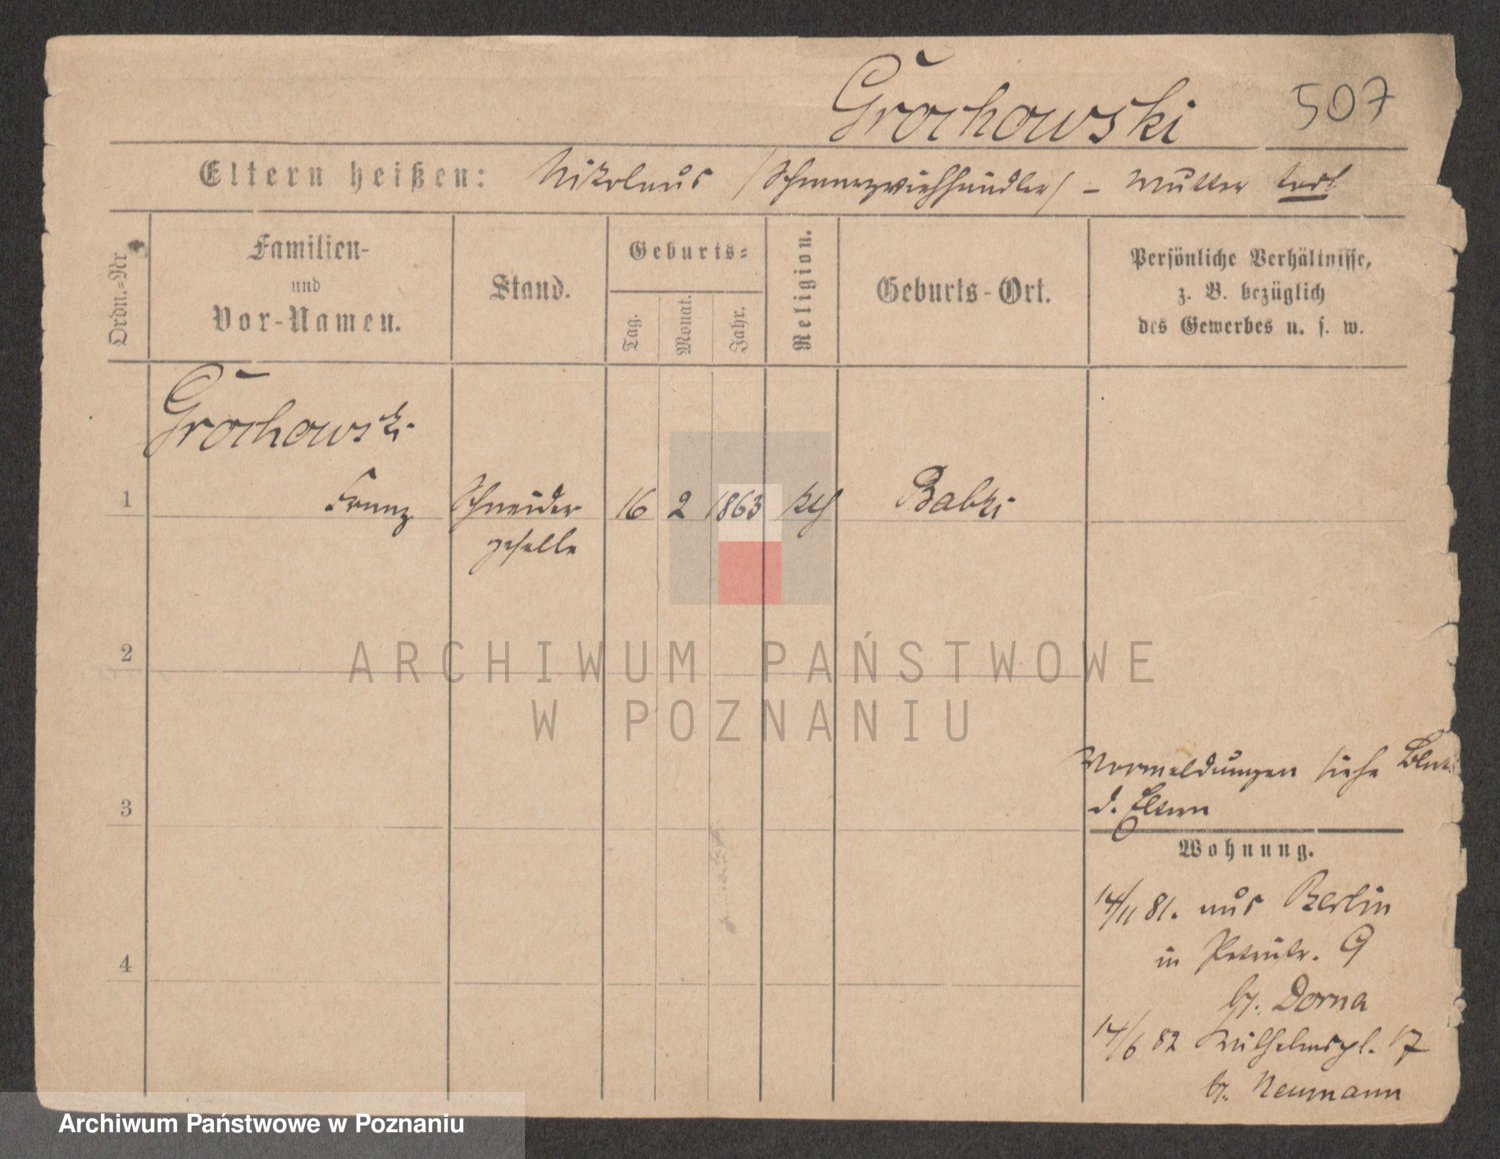 Grochowski 507
Eltern heißen: Nikolaus (Schwarzviehhändler) – Mutter todt
Ordn.-Nr.
Familien-
und
Vor-Namen.
Stand.
Geburts-
Tag.
Monat.
Jahr.
Religion.
Geburts-Ort.
Persönliche Verhältnisse,
z. B. bezüglich
des Gewerbes u. s. w.
Grochowski
1 Franz Schneider 16 2 1863 kth Babki
geselle
2
ARCHIWUM PAŃSTWOWE
W POZNANIU
Vormeldungen siehe Blatt
3 d. Eltern
Wohnung.
14/11 81. aus Berlin
4 in Petristr. 9
bz. Dorna
14/6 82 Wilhelmspl. 17
bz. Neumann
Archiwum Państwowe w Poznaniu